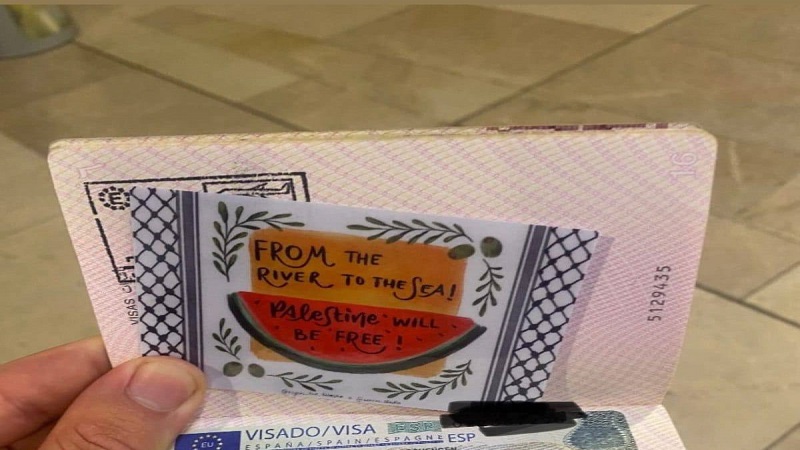 16
FROM THE
RIVER TO THE SEA!
Palestine WILL
BE FREE!
5129435
VISAS
EU
VISADO/VISA ESP
ESPAÑA/SPAIN/ESPAGNE ESP